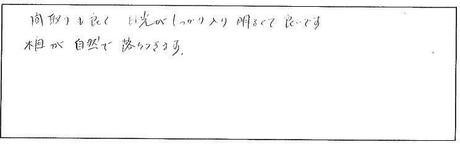 間取りも良く 日光がしっかり入り 明るくて良いです
木目が 自然で 落ちつきます。